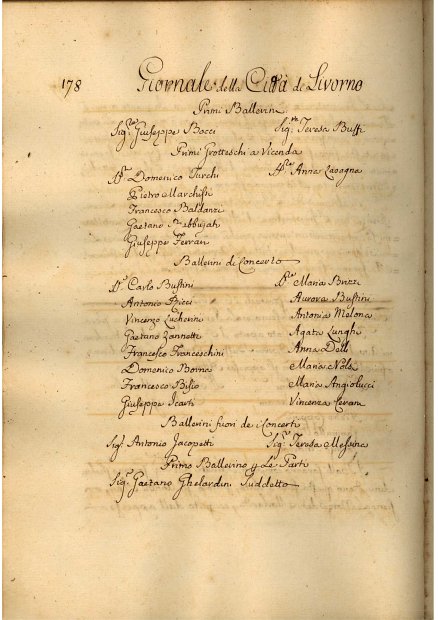 178 Giornale della Città di Livorno
Primi Ballerini
Sig.re Giuseppe Bocci Sig.ra Teresa Buffi
Primi Grotteschi a Vicenda
Domenico Turchi Anna Lavagna
Pietro Marchisi
Francesco Baldanzi
Gaetano
Giuseppe Ferrari
Ballerini di Concerto
Carlo Bustini Maria Brizzi
Antonio Ricci Aurora Bustini
Vincenzo Lucherini Antonia Melona
Gaetano Zannetti Agata Lunghi
Francesco Franceschini Anna Delli
Domenico Borna Maria Nola
Francesco Bisio Maria Angiolucci
Giuseppe Icarti Vincenza
Ballerini fuori de i Concerti
Sig. Antonio Jacopetti Sig. Teresa Messina
Primo Ballerino p Le Parti
Sig. Gaetano Ghelardini Suddetto